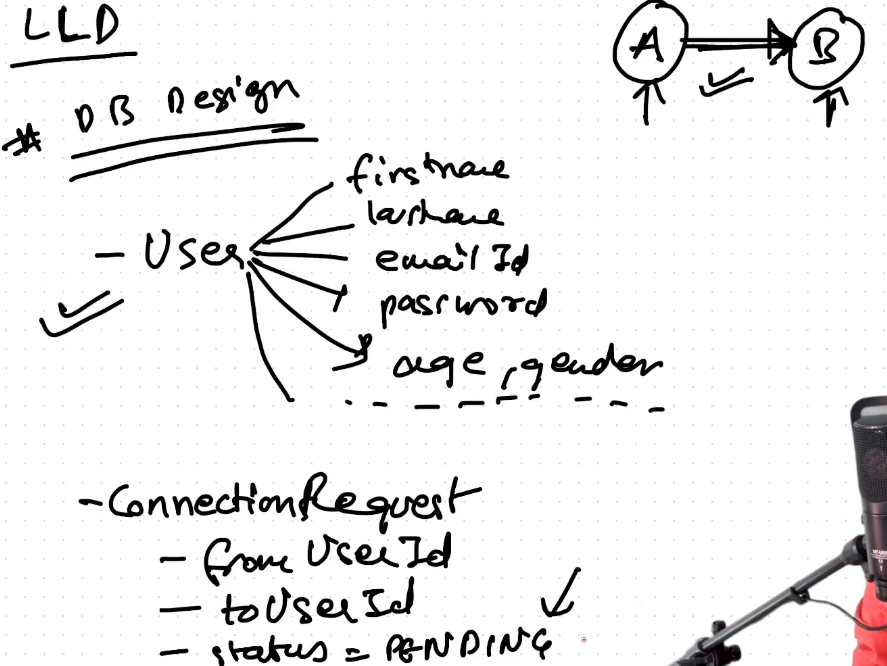 LLD
A
B
# DB Design
firstname
lastname
- User
emailId
password
age, gender
- ConnectionRequest
- fromUserId
- toUserId
- status = PENDING